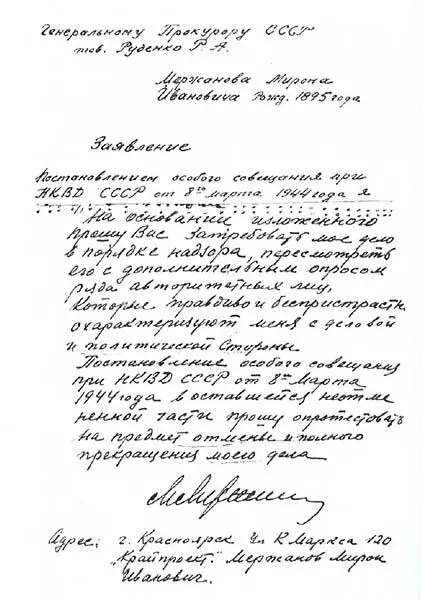 Генеральному Прокурору СССР
тов. Руденко Р. А.
Мержанова Мирона
Ивановича Рожд. 1895 года
Заявление
Постановлением особого совещания при
НКВД СССР от 8го марта 1944 года я
На основании изложенного
прошу Вас затребовать мое дело
в порядке надзора, пересмотреть
его с дополнительным опросом
ряда авторитетных лиц,
которые правдиво и беспристрастн
охарактеризуют меня с деловой
и политической стороны
Постановление особого совещания
при НКВД СССР от 8го Марта
1944 года в оставшейся неотме
ненной части прошу опротестовать
на предмет отмены и полного
прекращения моего дела
Адрес: г. Красноярск Ул К Маркса 120
"Крайпроект." Мержанов Мирон
Иванович.